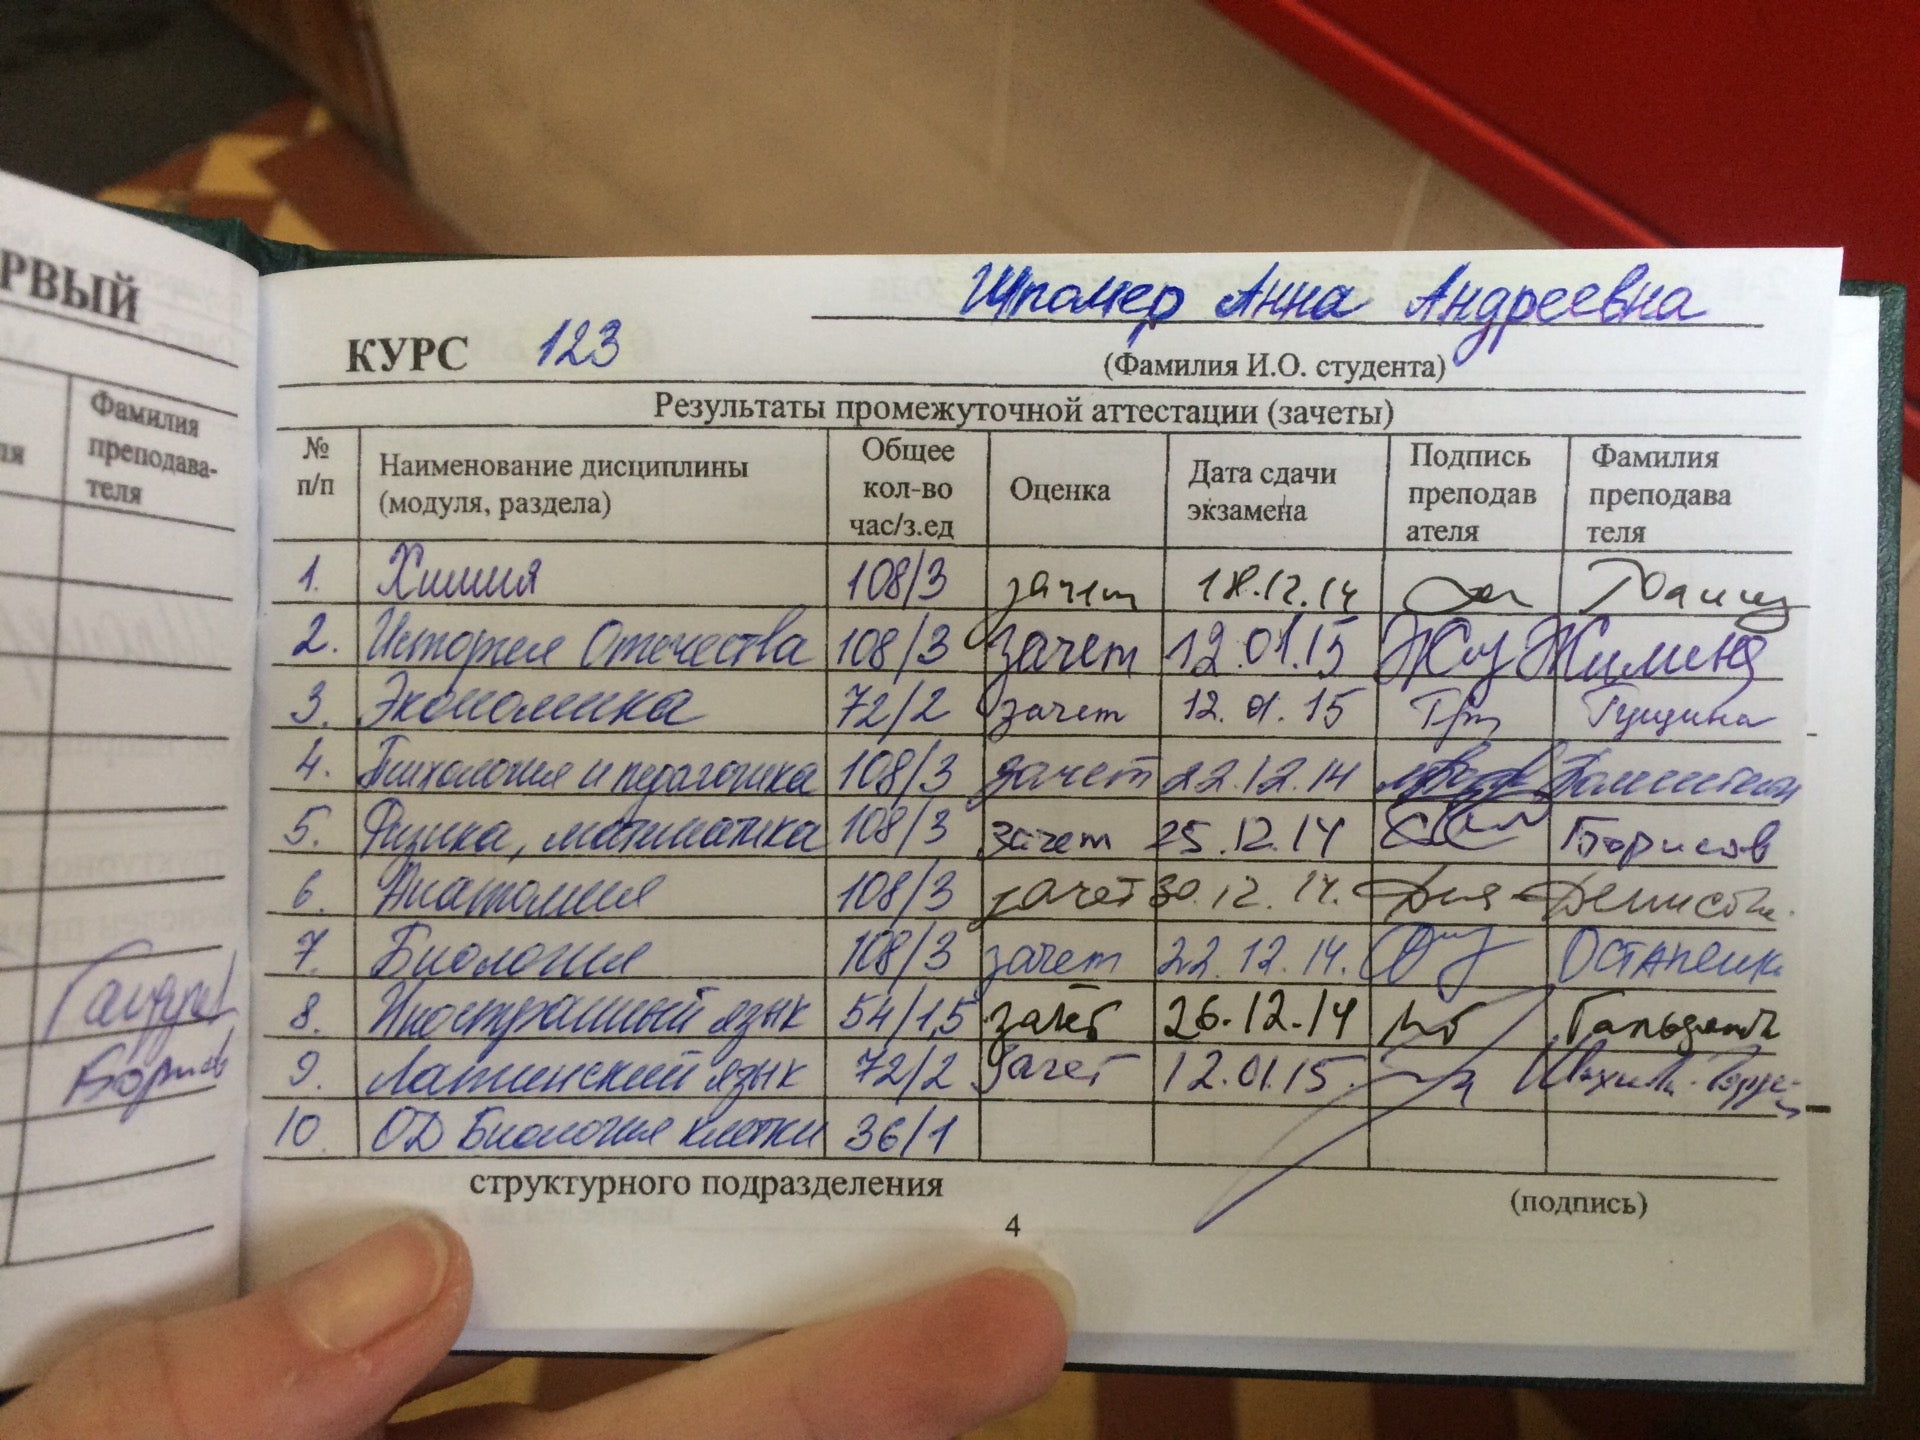 РВЫЙ
Фамилия
преподава-
теля
Борисов
Шпомер Анна Андреевна
КУРС 123
(Фамилия И.О. студента)
Результаты промежуточной аттестации (зачеты)
№ п/п Наименование дисциплины (модуля, раздела) Общее кол-во час/з.ед Оценка Дата сдачи экзамена Подпись преподав ателя Фамилия преподава теля
1. Химия 108/3 зачет 18.12.14
2. История Отечества 108/3 зачет 12.01.15 Жилина
3. Экономика 72/2 зачет 12.01.15 Гущина
4. Психология и педагогика 108/3 зачет 22.12.14
5. Физика, математика 108/3 зачет 25.12.14 Борисов
6. Анатомия 108/3 зачет 30.12.14.
7. Биология 108/3 зачет 22.12.14. Остапенк
8. Иностранный язык 54/1,5 зачёт 26.12.14
9. Латинский язык 72/2 Зачет 12.01.15.
10 ОД Биология клетки 36/1
структурного подразделения (подпись)
4